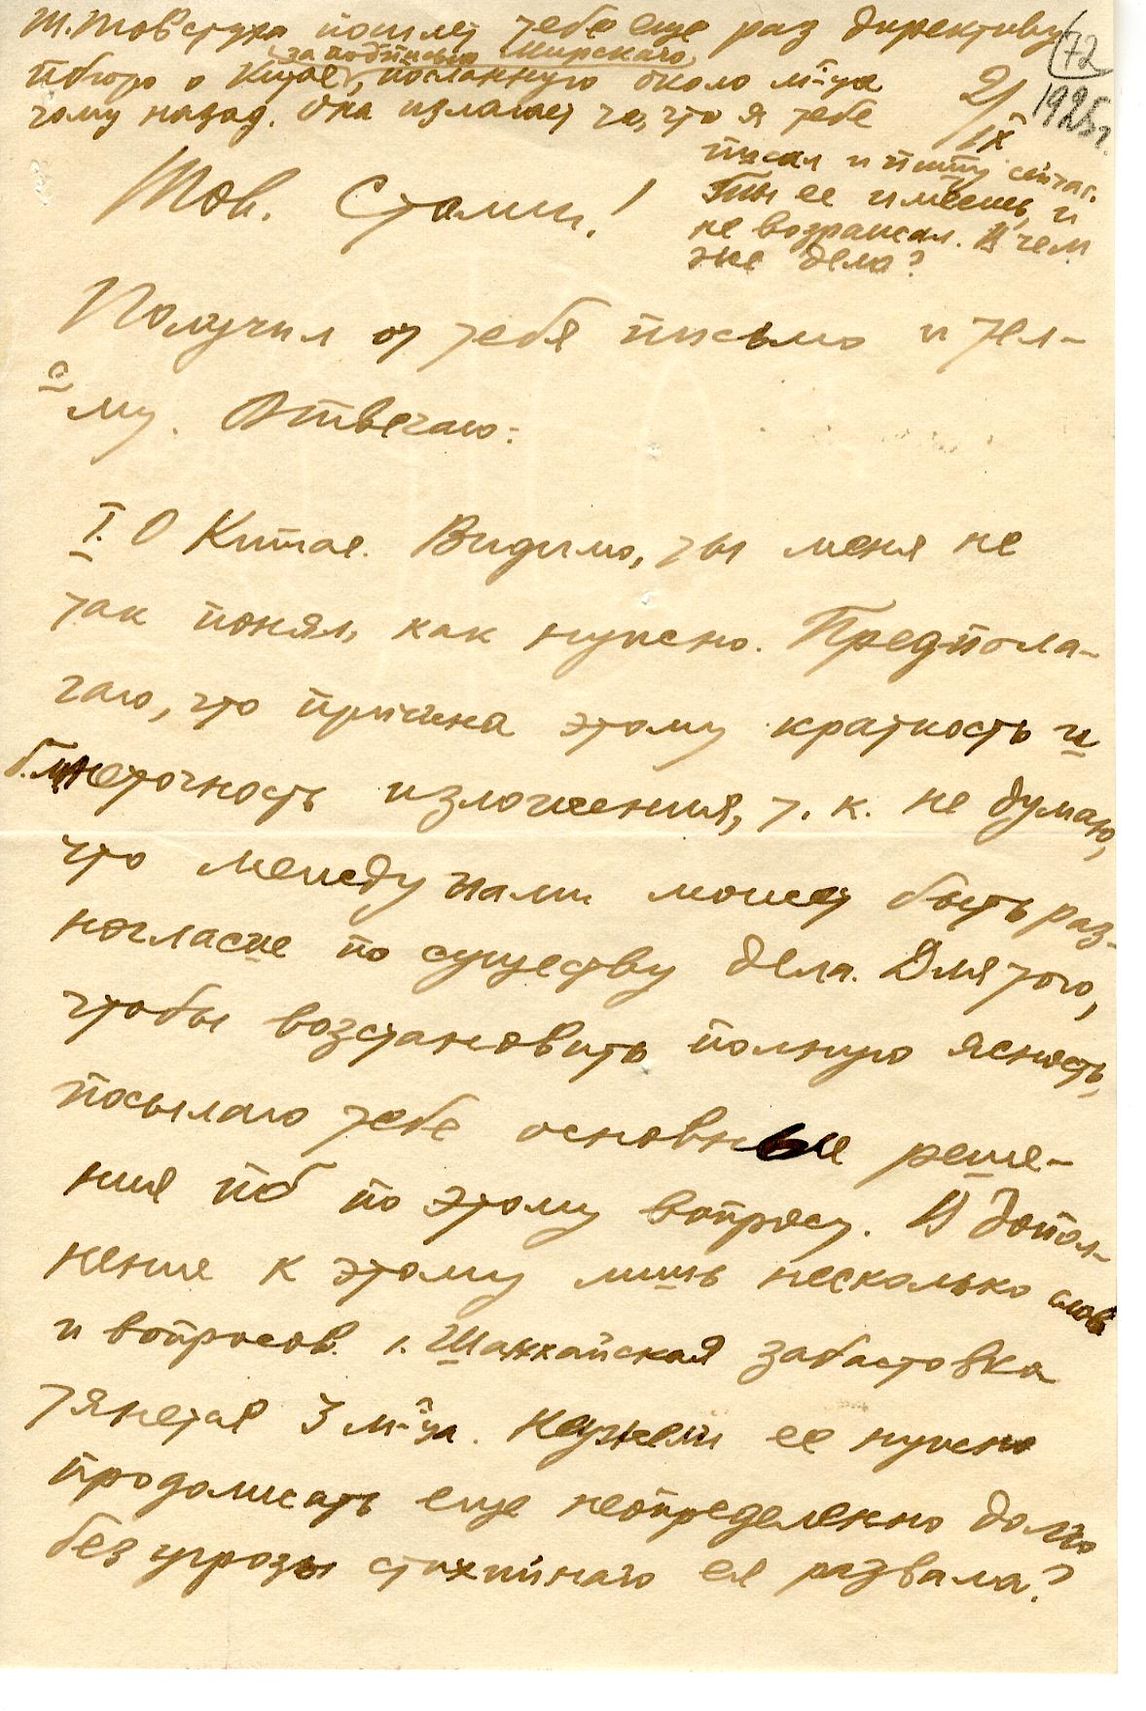 Т. Товстуха пошлет тебе еще раз директиву
за подписью Мирского,
Пбюро о Китае, посланную около м-ца
тому назад. Она излагает то, что я тебе
писал и пишу сейчас.
Ты ее имеешь, и
не возражал. В чем
же дело?
72
2/IX
1925 г.
Тов. Сталин!
Получил от тебя письмо и тел-
му. Отвечаю:
I. О Китае. Видимо, ты меня не
так понял, как нужно. Предпола-
гаю, что причина этому краткость и
б.м. неточность изложения, т. к. не думаю,
что между нами может быть раз-
ногласие по существу дела. Для того,
чтобы возстановить полную ясность,
посылаю тебе основные реше-
ния ПБ по этому вопросу. В допол-
нение к этому лишь несколько слов
и вопросов. 1. Шанхайская забастовка
тянется 3 м-ца. Неужели ее нужно
продолжать еще неопределенно долго
без угрозы стихийнаго ея развала?